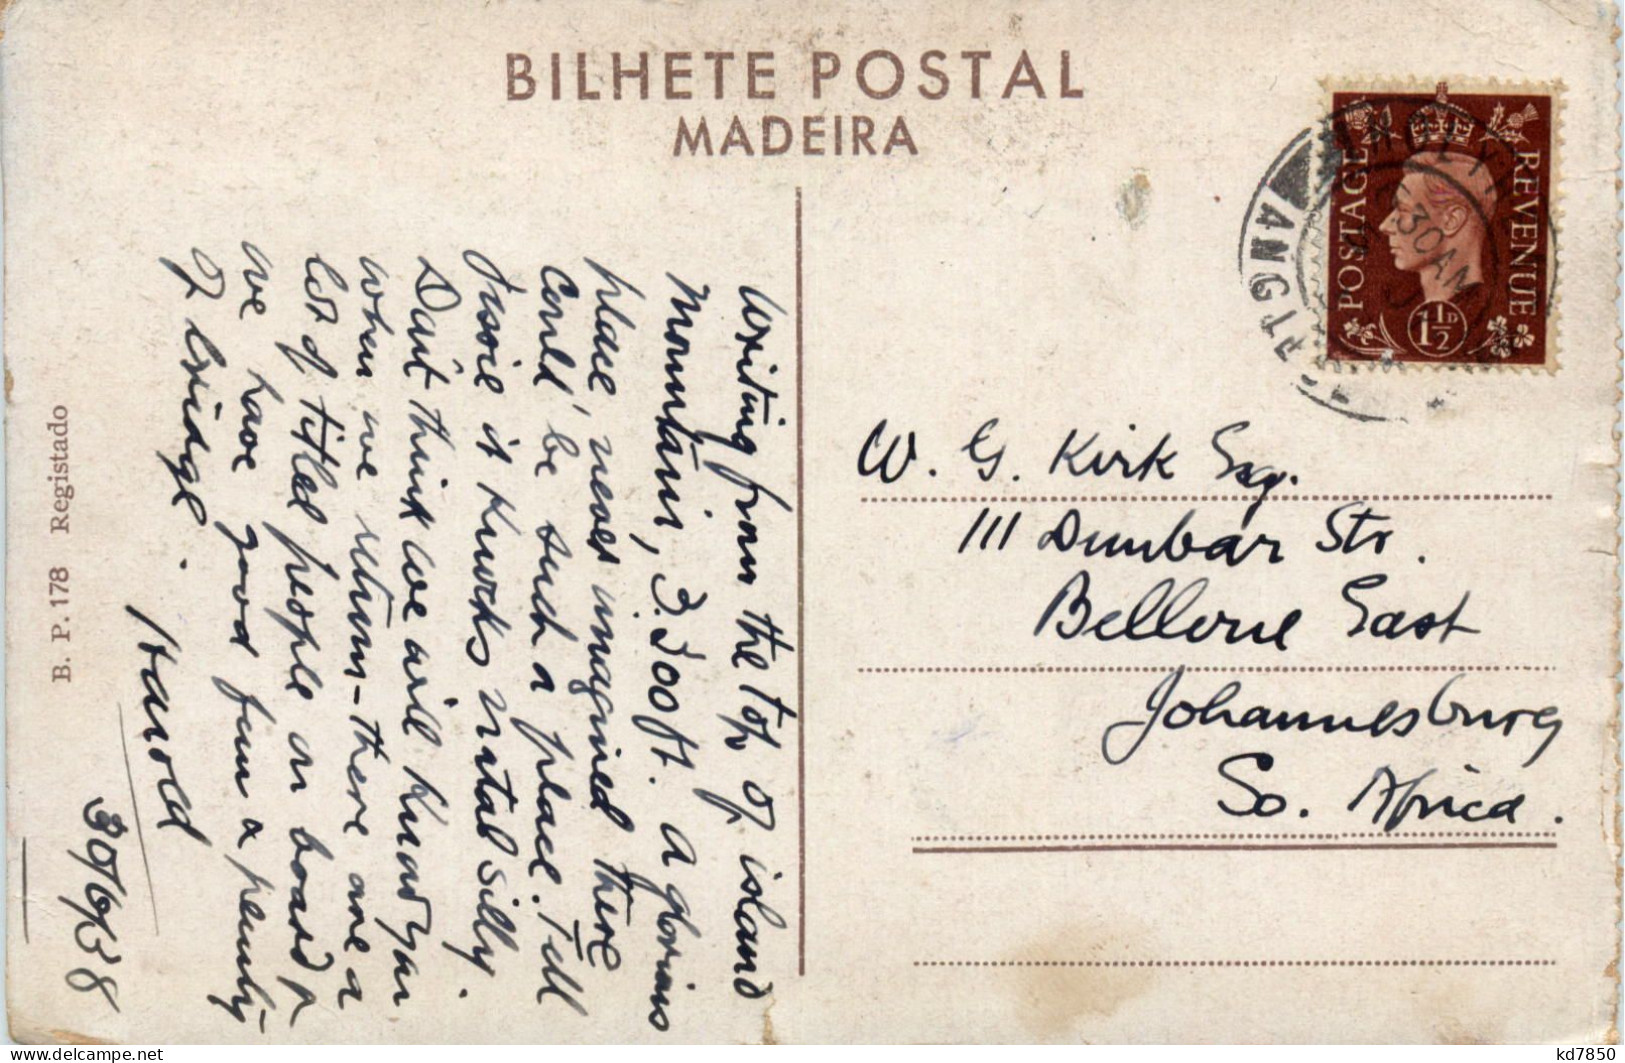 BILHETE POSTAL
MADEIRA
POSTAGE REVENUE
1½D
30AM
Writing from the top of island
Mountain, 3.300ft. A glorious
place, never imagined there
could be such a place. Tell
Jussie it knocks natal silly.
Don't think we will know you
when we return – there are a
lot of titled people on board &
we have good fun a plenty
of bridge.
Harold
30/6/38
W. G. Kirk Esq.
111 Dunbar Str.
Bellevue East
Johannesburg
So. Africa.
B. P. 178 Registado
kd7850